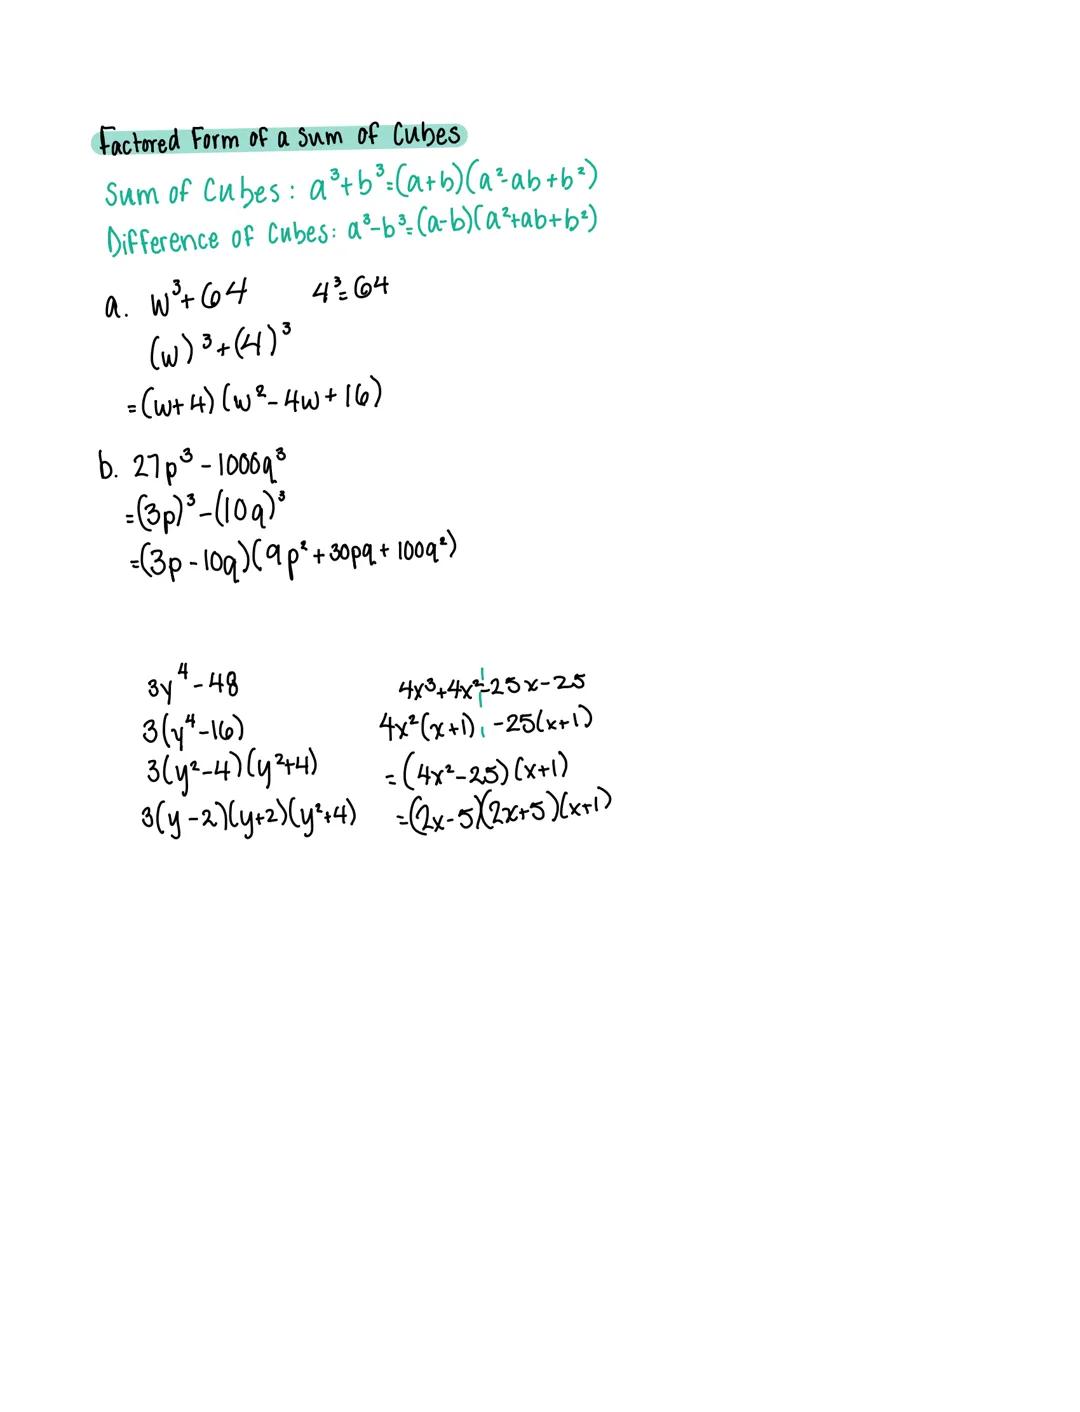 Factored Form of a Sum of Cubes
Sum of Cubes: a³+b³=(a+b)(a²-ab+b²)
Difference of Cubes: a³-b³=(a-b)(a²+ab+b²)
a. w³+64 4³=64
(w)³+(4)³
=(w+4)(w²-4w+16)
b. 27p³-1000q³
=(3p)³-(10q)³
=(3p-10q)(9p²+30pq+100q²)
3y⁴-48
3(y⁴-16)
3(y²-4)(y²+4)
3(y-2)(y+2)(y²+4)
4x³+4x²-25x-25
4x²(x+1) -25(x+1)
=(4x²-25)(x+1)
=(2x-5)(2x+5)(x+1)